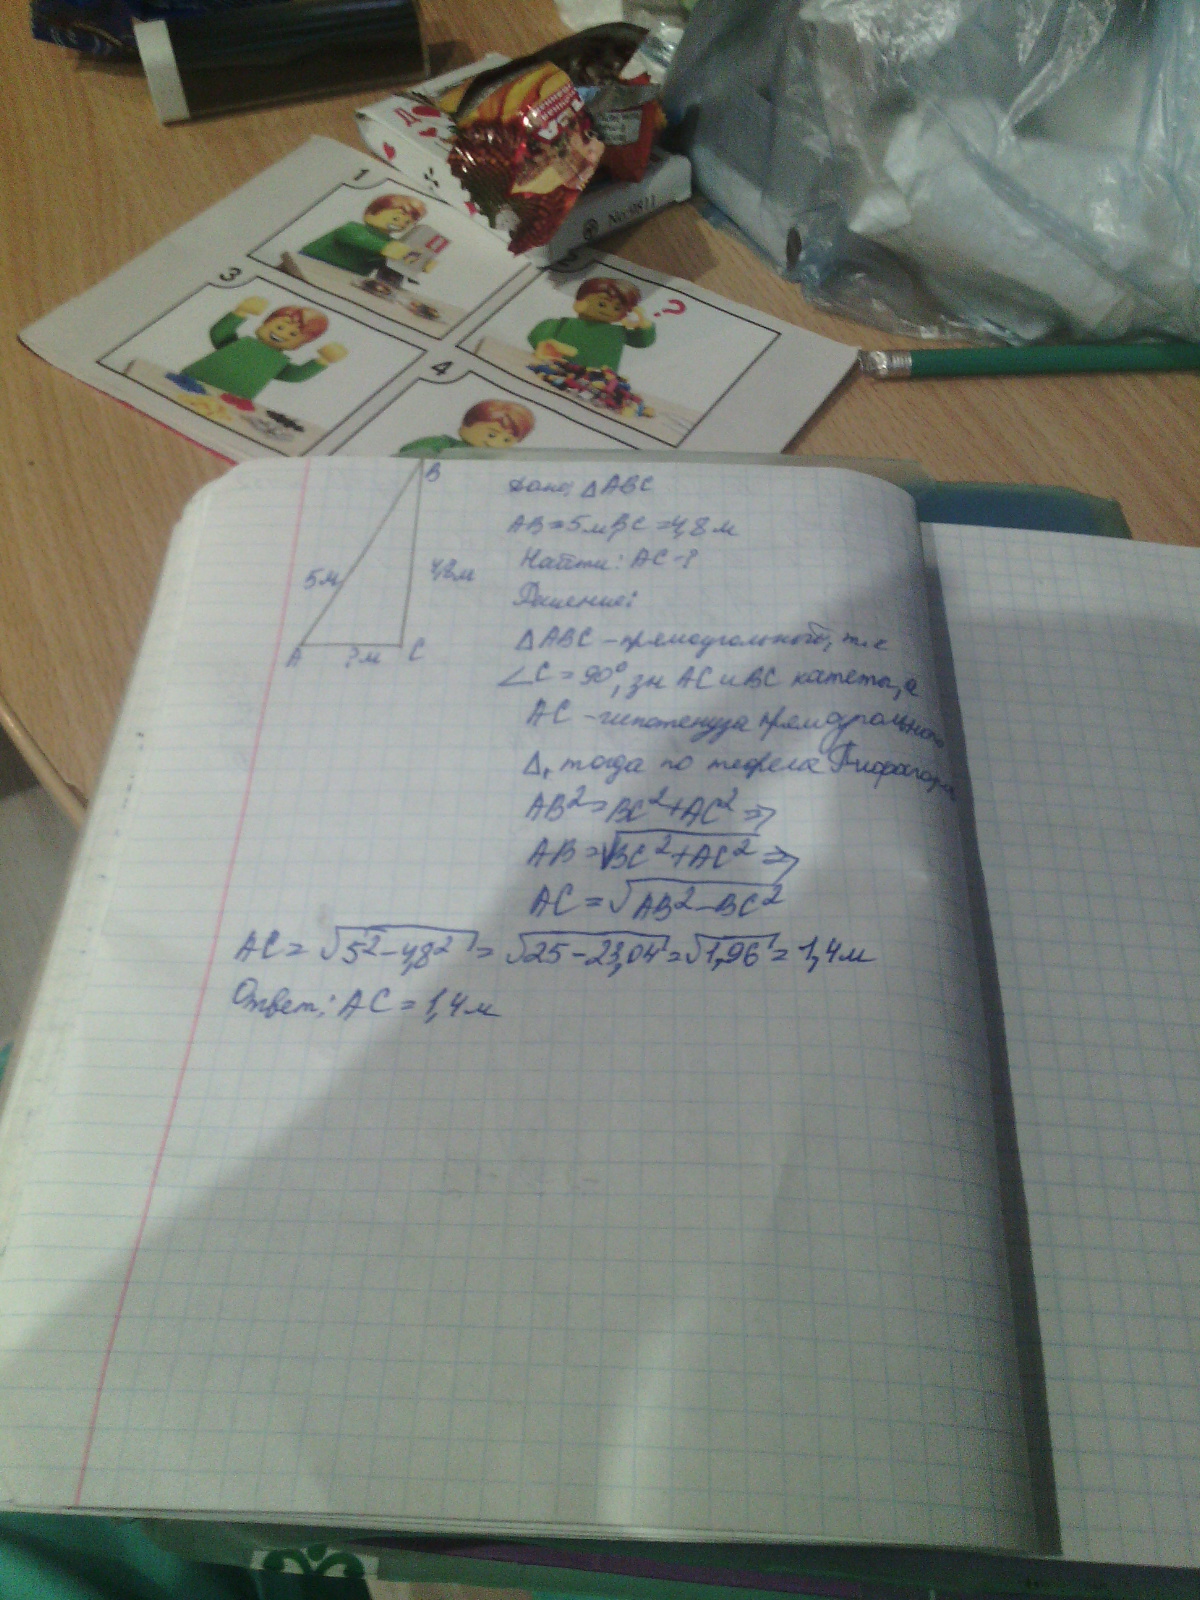 Д
No.9811
1
2
?
3
4
B
5м
4,8м
A
?м
C
Дано: △ABC
AB=5м BC=4,8м
Найти: AC-?
Решение:
△ABC – прямоугольный, т.к
∠C=90°, зн AC и BC катеты, а
AC – гипотенуза прямоугольного
△, тогда по теорема Пифагора
AB²=BC²+AC² ⇒
AB=√BC²+AC² ⇒
AC=√AB²-BC²
AC=√5²-4,8²=√25-23,04=√1,96=1,4м
Ответ: AC=1,4м